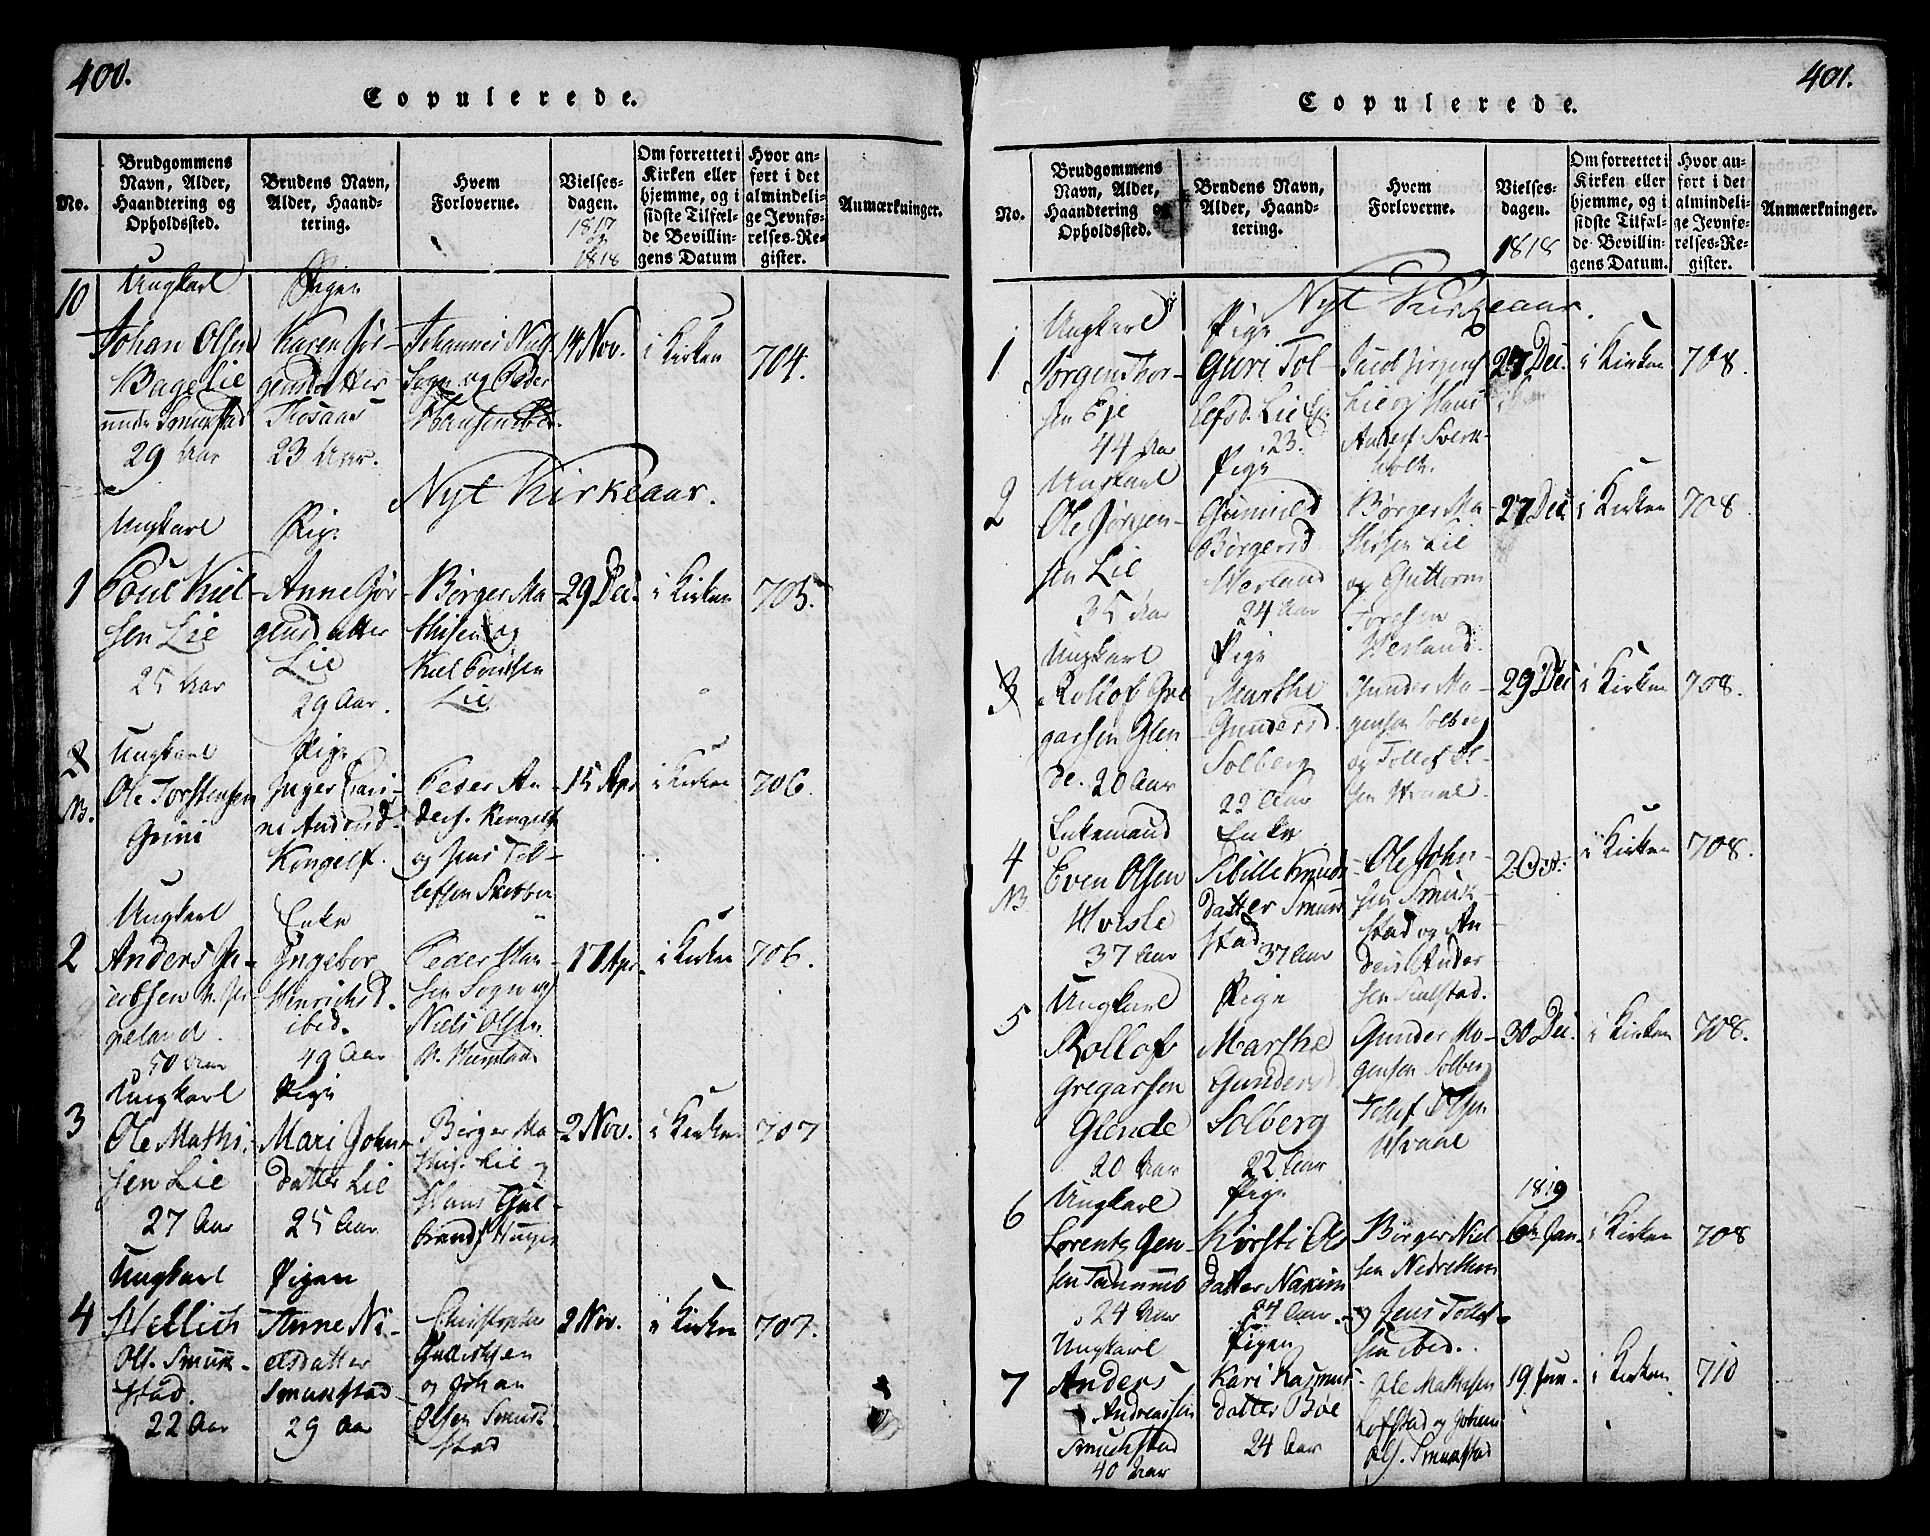 400.
Copulerede.
No.
Brudgommens
Navn, Alder,
Haandtering og
Opholdssted.
Brudens Navn,
Alder, Haand-
tering.
Hvem
Forloverne.
Vielses-
dagen.
1817
og
1818
Om forrettet i
Kirken eller
hjemme, og i
sidste Tilfæl-
de Bevillin-
gens Datum
Hvor an-
ført i det
almindeli-
ge Jevnfø-
relses-Re-
gister.
Anmærkninger.
10
Ungkarl
Johan Olsen
Bage Lie
Smukstad
29 Aar
Pigen
Karen Jør-
gensd
23 Aar.
Johannes Niels
Sogn og Peder
Hansen ibd.
14 Nov.
i Kirken
704.
Nyt Kirkeaar.
1
Ungkarl
Poul Kiel-
sen Lie
25 Aar
Pige
Anne Jør-
gensdatter
Lie
29 Aar.
Børger Ma-
thisen og
Kiel Poulsen
Lie
29 Dec.
i Kirken
705.
2
NB.
Ungkarl
Ole Torstensen
Grini
Pige
Inger Cari-
ne Andersd.
Kongelf.
Peder An-
ders. Kongelf
og Jens Tol-
lefsen
15 Apr
i Kirken
706.
2
Ungkarl
Anders Ja-
cobsen
50 Aar
Enke
Ingebor
Henrichsd.
ibid.
49 Aar
Peder Han-
sen Sogn og
Niels Olsen
17 Apr.
i Kirken
706.
3
Ungkarl
Ole Mathi-
sen Lie
27 Aar
Pige
Mari Johns
datter Lie
25 Aar
Børger Ma-
this. Lie og
Hans Gul-
brands
2 Nov.
i Kirken
707
4
Ungkarl
Ols. Smuk-
stad.
22 Aar
Pigen
Anne Ni-
elsdatter
Smukstad
29 Aar
Christopher
Gulliksen
og Johan
Olsen Smuk
stad
2 Nov.
i Kirken
707.
401.
Copulerede.
No.
Brudgommens
Navn, Alder,
Haandtering og
Opholdssted.
Brudens Navn,
Alder, Haand-
tering.
Hvem
Forloverne.
Vielses-
dagen.
1818
Om forrettet i
Kirken eller
hjemme, og i
sidste Tilfæl-
de Bevillin-
gens Datum.
Hvor an-
ført i det
almindeli-
ge Jevnfø-
relses-Re-
gister.
Anmærkninger.
Nyt Kirkeaar.
1
Ungkarl
Jørgen Thor-
sen Eje
44 Aar
Pige
Guri Tol-
lefsd. Lie Ej.
23.
Jacob Jørgens
Lie og Hans
Anders Svenk-
holt.
27 Dec.
i Kirken
708.
2
Ungkarl
Ole Jørgen-
sen Lie
35 Aar
Pige
Gunnild
Børgersd
Werland
24 Aar
Børger Ma-
thisen Lie
og Guttorm
Toresen
Werland.
27 Dec.
i Kirken
708
3
Ungkarl
Rollof Gre
garsen Glen
de. 20 Aar
Pige
Marthe
Gundersd.
Solberg
22 Aar
Gunder Mo-
gensen Solberg
og Tollef Ol-
sen Hvaal.
29 Dec
i Kirken
708.
4
NB
Enkemand
Even Olsen
Hvisle
37 Aar
Enke
Sibille Knuds
datter Smuk
stad 37 Aar
Ole John-
sen Smuk
stad og An
ders Ander
sen
i Kirken
708.
5
Ungkarl
Rollof
Gregarsen
Glende
20 Aar
Pige
Marthe
Gundersd
Solberg
22 Aar
Gunder Mo-
gensen Solberg
Tollef Olsen
Hvaal
30 Dec.
i Kirken
708.
1819
6
Ungkarl
Lorents Jen-
sen
24 Aar
Pige
Kirsti Ols
datter
24 Aar.
Børger Niel
sen
og Jens Tollef-
sen ibid.
6te Jan.
i Kirken
708
7
Ungkarl
Anders
Andreassen
Smuckstad
40 Aar
Pigen
Kari Rasmus-
datter Bøe
24 Aar
Ole Mathesen
Lofstad og Johan
Ols. Smukstad
19 Jun.
i Kirken
710